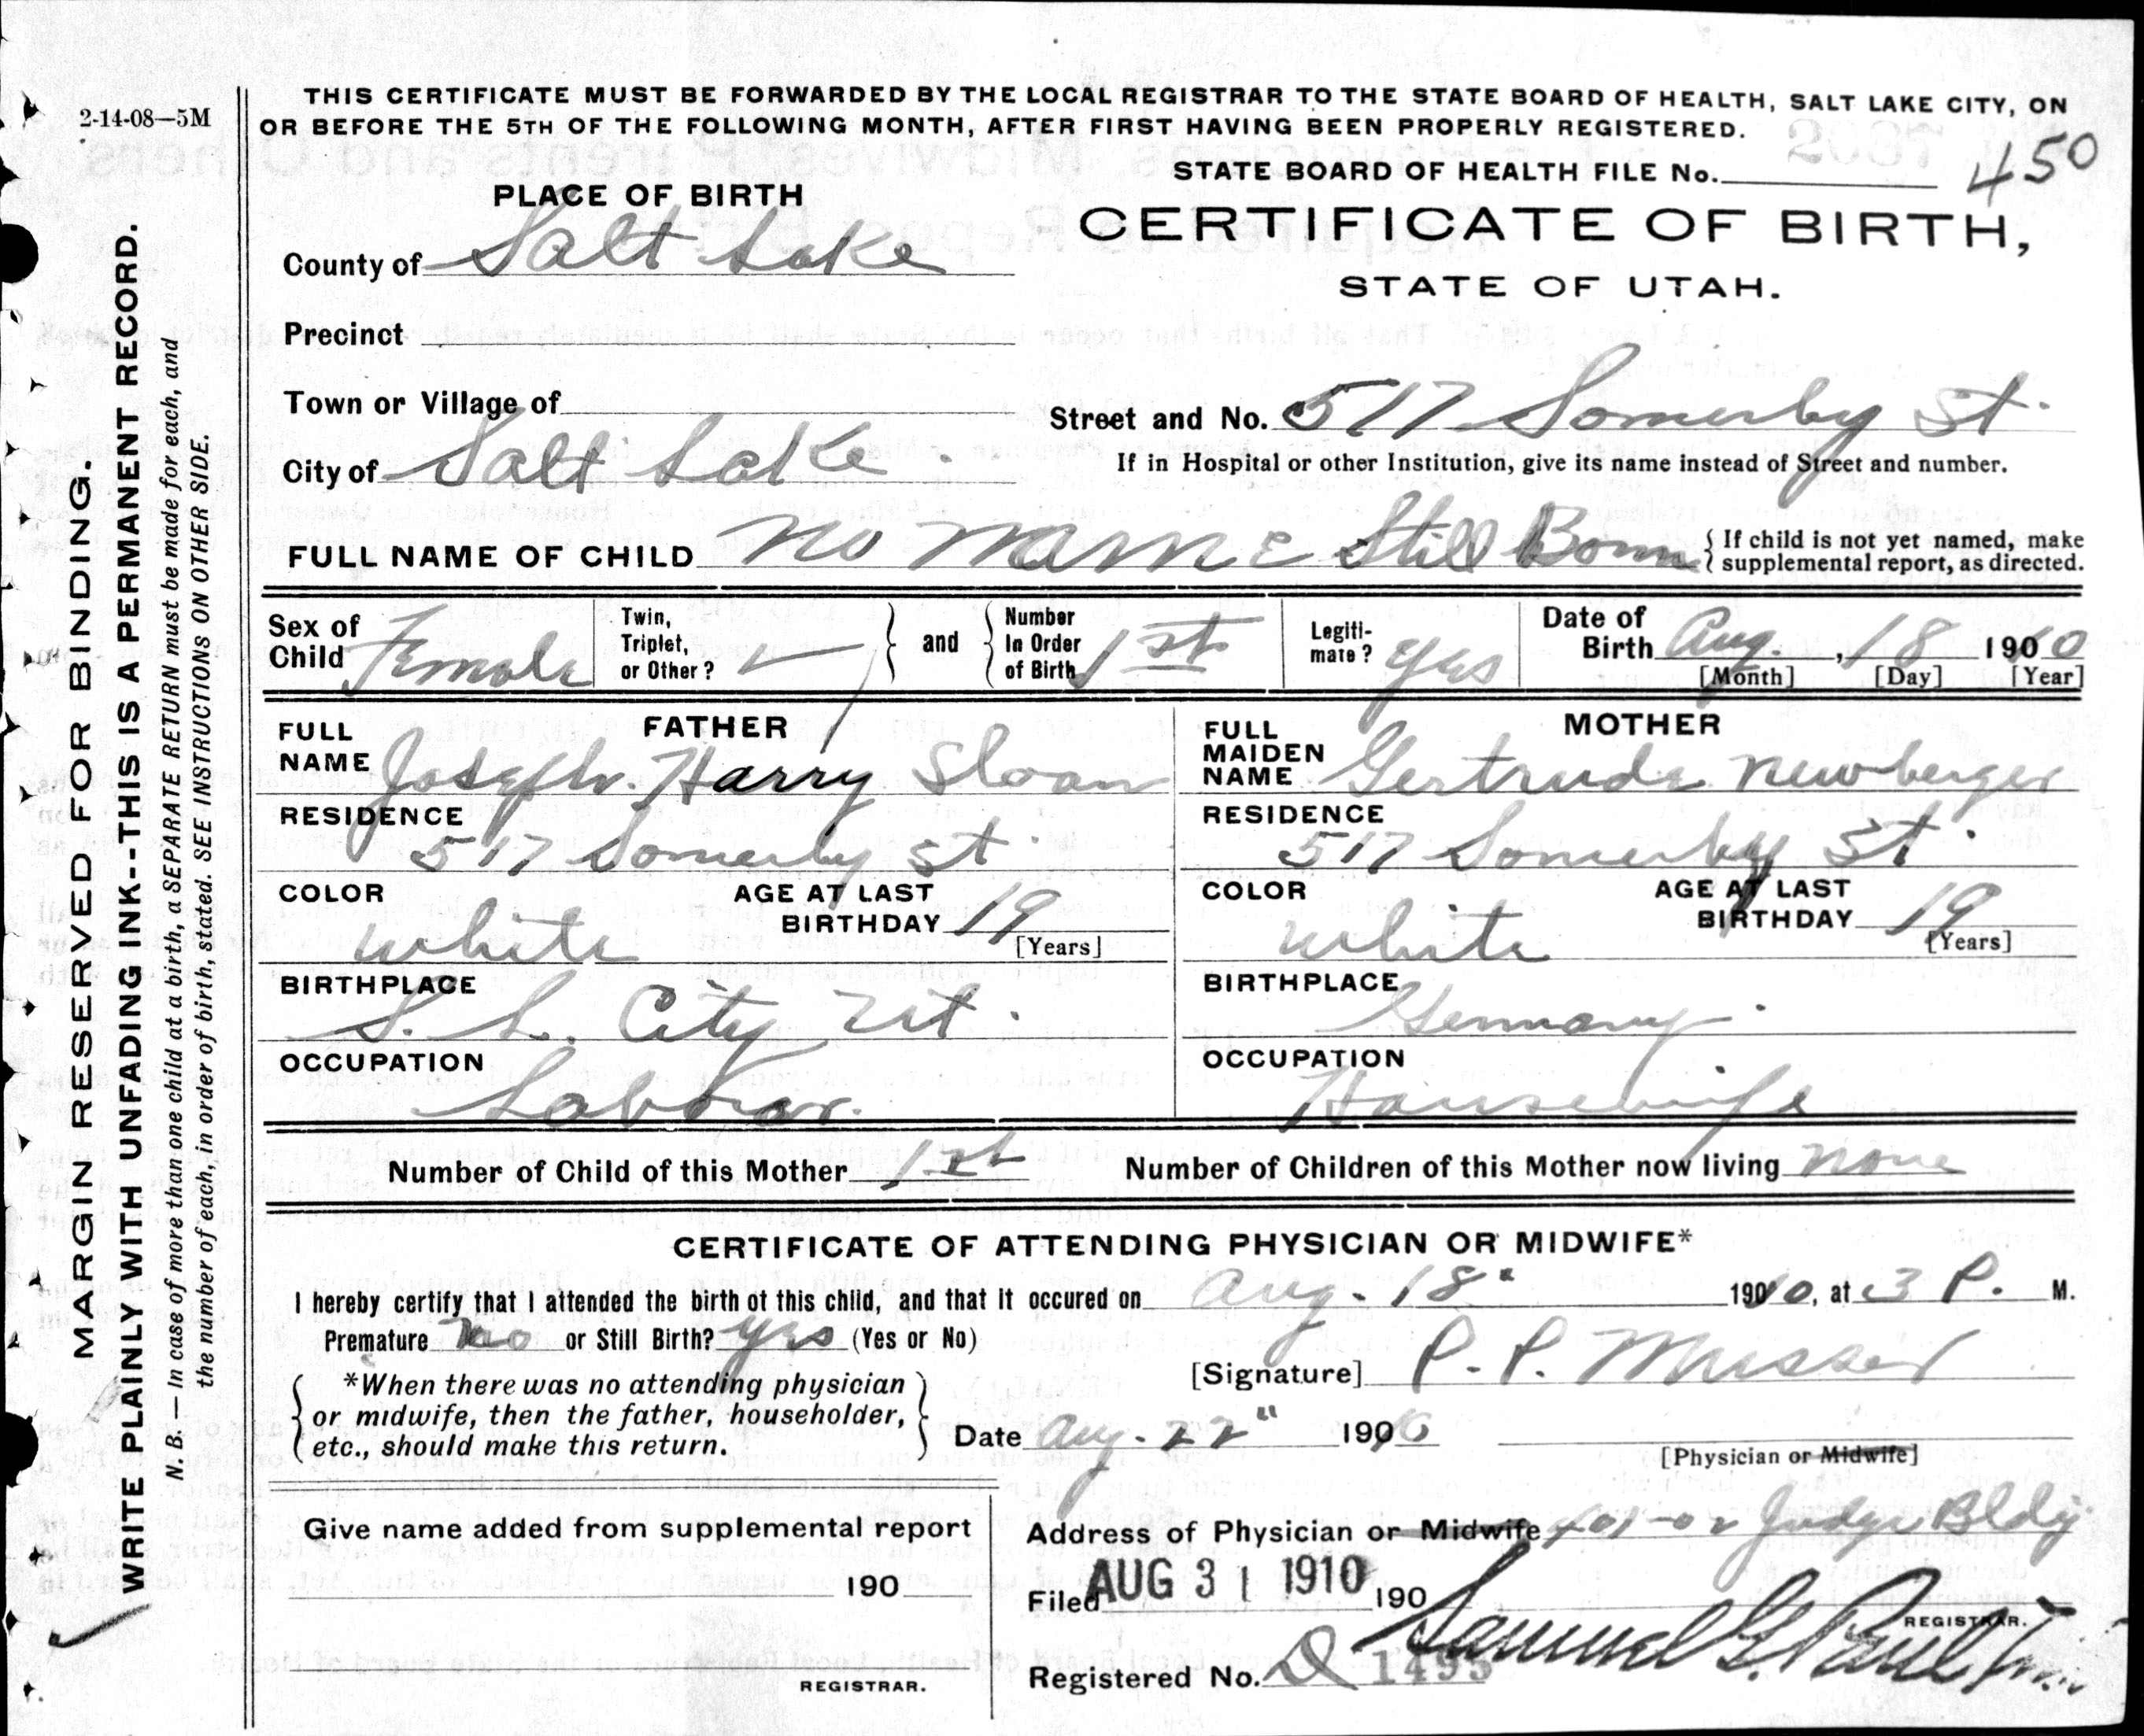 2-14-08—5M
THIS CERTIFICATE MUST BE FORWARDED BY THE LOCAL REGISTRAR TO THE STATE BOARD OF HEALTH, SALT LAKE CITY, ON
OR BEFORE THE 5TH OF THE FOLLOWING MONTH, AFTER FIRST HAVING BEEN PROPERLY REGISTERED.
STATE BOARD OF HEALTH FILE No. 450
PLACE OF BIRTH
CERTIFICATE OF BIRTH,
STATE OF UTAH.
County of Salt Lake
Precinct
Town or Village of
Street and No. 517 Somerby St.
City of Salt Lake.
If in Hospital or other Institution, give its name instead of Street and number.
FULL NAME OF CHILD No Name Still Born { If child is not yet named, make
supplemental report, as directed.
Sex of Child Female
Twin, Triplet, or Other?
and
Number In Order of Birth 1st
Legiti-mate? Yes
Date of Birth Aug. , 18 1910
[Month] [Day] [Year]
FATHER
FULL NAME Joseph. Harry Sloan
RESIDENCE
517 Somerby St.
COLOR
white
AGE AT LAST BIRTHDAY 19
[Years]
BIRTHPLACE
S. L. City Ut.
OCCUPATION
Labor.
MOTHER
FULL MAIDEN NAME Gertrude Newberger
RESIDENCE
517 Somerby St.
COLOR
white
AGE AT LAST BIRTHDAY 19
[Years]
BIRTHPLACE
Germany.
OCCUPATION
Housewife
Number of Child of this Mother 1st
Number of Children of this Mother now living none
CERTIFICATE OF ATTENDING PHYSICIAN OR MIDWIFE*
I hereby certify that I attended the birth of this child, and that it occured on Aug. 18" 1910, at 3 P. M.
Premature No or Still Birth? yes (Yes or No)
[Signature] P. P. Musser
*When there was no attending physician
or midwife, then the father, householder,
etc., should make this return.
Date Aug. 22" 1910
[Physician or Midwife]
Give name added from supplemental report
190
REGISTRAR.
Address of Physician or Midwife 401-02 Judge Bldg
Filed AUG 31 1910 190
REGISTRAR.
Registered No. 1495
MARGIN RESERVED FOR BINDING.
WRITE PLAINLY WITH UNFADING INK--THIS IS A PERMANENT RECORD.
N. B.—In case of more than one child at a birth, a SEPARATE RETURN must be made for each, and
the number of each, in order of birth, stated. SEE INSTRUCTIONS ON OTHER SIDE.